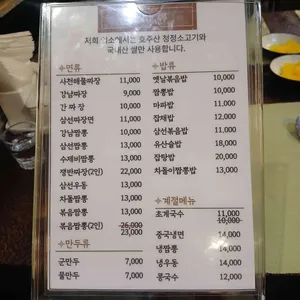 저희 업소에서는 호주산 청정소고기와
국내산 쌀만 사용합니다.
면류
사천해물짜장 11,000
강남짜장 9,000
간 짜 장 10,000
삼선짜장면 11,000
강남짬뽕 10,000
삼선짬뽕 13,000
수제비짬뽕 13,000
쟁반짜장(2인) 22,000
삼선우동 13,000
차돌짬뽕 13,000
볶음짬뽕 13,000
볶음짬뽕(2인) 26,000
23,000
만두류
군만두 7,000
물만두 7,000
밥류
옛날볶음밥 10,000
짬뽕밥 10,000
마파밥 11,000
잡채밥 12,000
삼선볶음밥 11,000
유산슬밥 18,000
잡탕밥 20,000
차돌이짬뽕밥 13,000
계절메뉴
초계국수 11,000
10,000
중국냉면 14,000
냉짬뽕 14,000
냉우동 14,000
콩국수 12,000